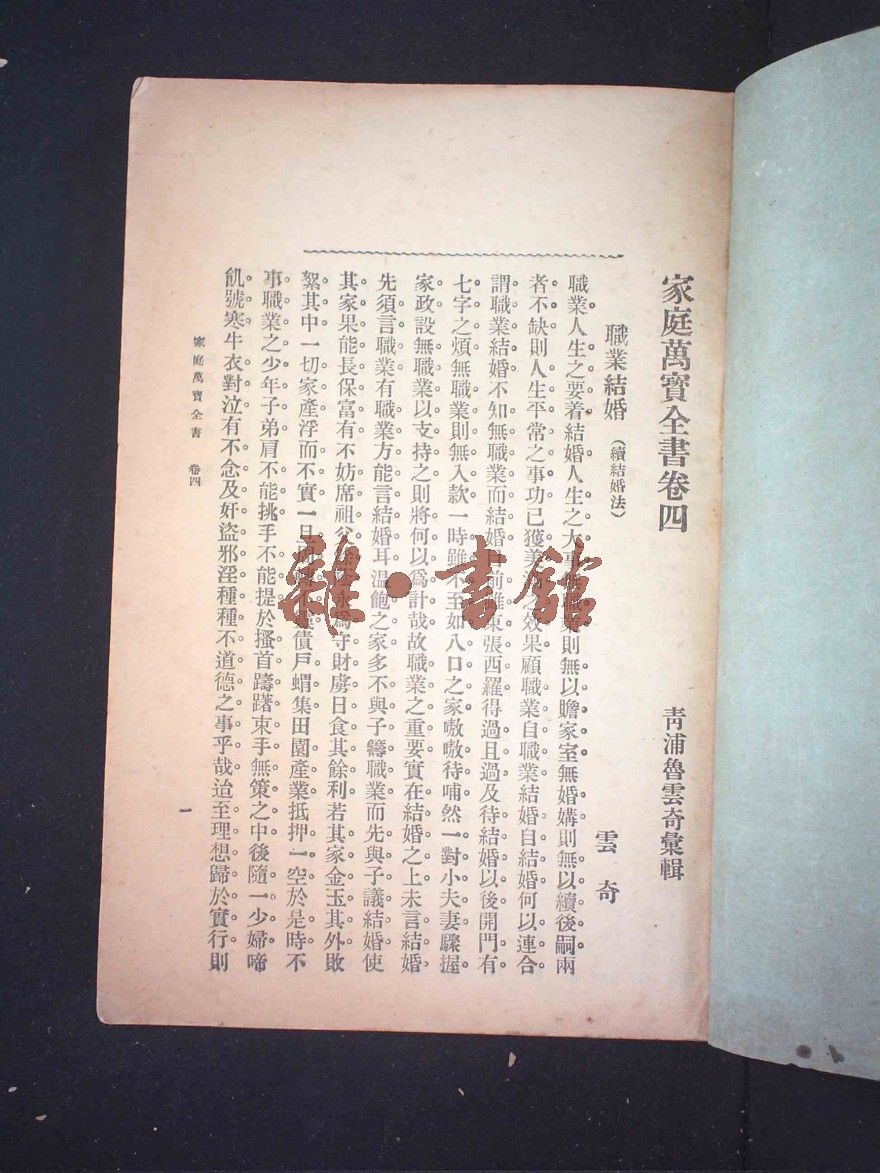 家庭萬寶全書卷四
青浦魯雲奇彙輯
職業結婚 (續結婚法)
雲奇
職業人生之要着結婚人生之大事無職業則無以贍家室無婚媾則無以續後嗣兩
者不缺則人生平常之事功已獲美滿之效果顧職業自職業結婚自結婚何以連合
謂職業結婚不知無職業而結婚目前雖東張西羅得過且過及待結婚以後開門有
七字之煩無職業則無入款一時雖不至如八口之家嗷嗷待哺然一對小夫妻驟握
家政設無職業以支持之則將何以爲計哉故職業之重要實在結婚之上未言結婚
先須言職業有職業方能言結婚耳温飽之家多不與子籌職業而先與子議結婚使
其家果能長保富有不妨席祖父餘蔭永爲守財虜日食其餘利若其家金玉其外敗
絮其中一切家產浮而不實一旦債戶蝟集田園產業抵押一空於是時不
事職業之少年子弟肩不能挑手不能提於搔首躊躇束手無策之中後隨一少婦啼
飢號寒牛衣對泣有不念及奸盜邪淫種種不道德之事乎哉迨至理想歸於實行則
家庭萬寶全書 卷四
一
雜·書館